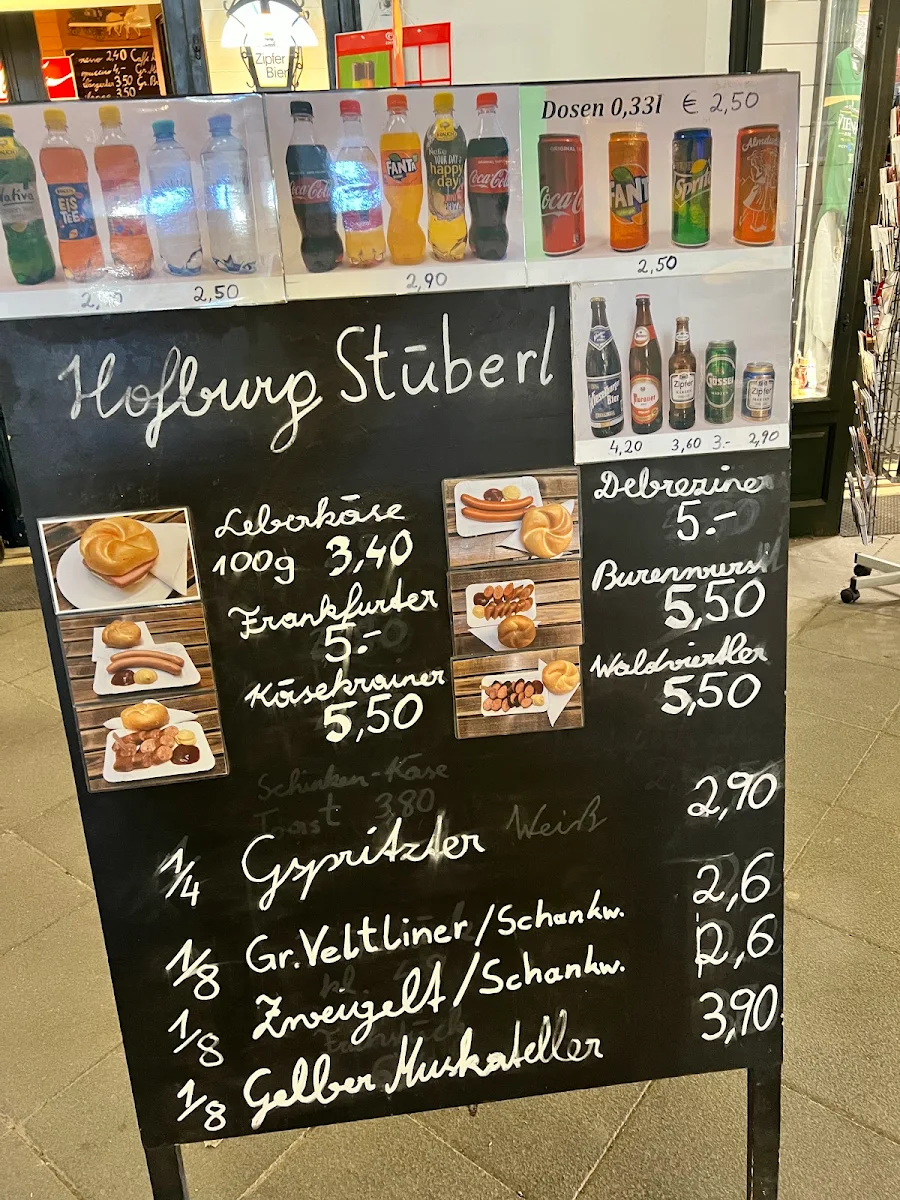 Zipfer
Bier
Dosen 0,33l € 2,50
EIS
TEE
Coca-Cola
FANTA
happy
day
Coca-Cola
FANTA
Sprite
Almdudler
2,50
2,90
2,50
Hofburg Stüberl
Zipfer
Gösser
Zipfer
4,20 3,60 3.- 2,90
Leberkäse
100g 3,40
Frankfurter
5.-
Käsekrainer
5,50
Debreziner
5.-
Burenwurst
5,50
Waldviertler
5,50
Schinken-Käse
Toast 3,80
1/4 Gspritzter Weiß 2,90
1/8 Gr.Veltliner/Schankw. 2,6
1/8 Zweigelt/Schankw. 2,6
1/8 Gelber Muskateller 3,90